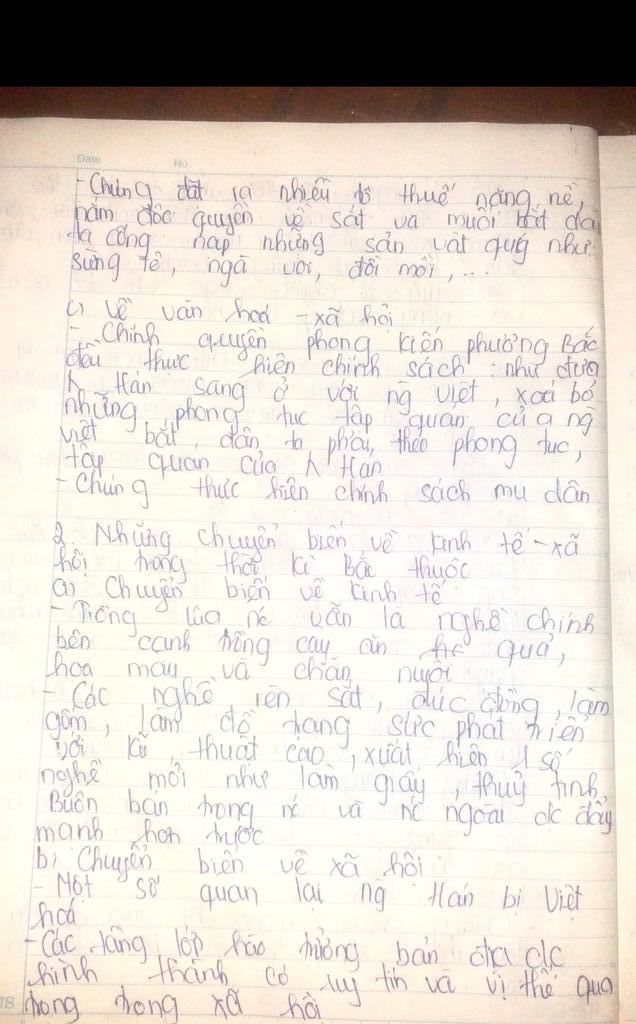 Date No.
- Chúng đặt ra nhiều thuế nặng nề,
nắm độc quyền về sắt và muối bắt dân
ta cống nạp những sản vật quý như
sừng tê, ngà voi, đồi mồi, ...
c) Về văn hoá - xã hội
- Chính quyền phong kiến phương Bắc
đều thực hiện chính sách : như đưa
Hán sang ở với ng Việt, xoá bỏ
những phong tục tập quán của ng
việt bắt, dân ta phải, theo phong tục,
tập quán của Hán
- Chúng thực hiện chính sách mu dân
2. Những chuyển biến về kinh tế - xã
hội trong thời kì Bắc thuộc
a) Chuyển biến về kinh tế
- Trồng lúa nc vẫn là nghề chính
bên cạnh trồng cây ăn quả,
hoa màu và chăn nuôi
- Các nghề rèn sắt, đúc đồng, làm
gốm, làm đồ trang sức phát triển
với kĩ thuật cao, xuất hiện 1 số
nghề mới như làm giấy, thuỷ tinh,
Buôn bán trong nc và nc ngoài dc đẩy
mạnh hơn trước
b) Chuyển biến về xã hội
- Một số quan lại ng Hán bị Việt
hoá
- Các tầng lớp hào trưởng bản địa dc
hình thành có uy tín và vị thế qua
trọng trong xã hội